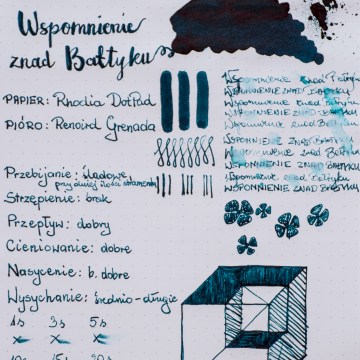 Wspomnienie
znad Bałtyku
PAPIER: Rhodia DotPad
PIÓRO: Renoird Grenada
Przebijanie: śladowe
przy dużej ilości atramentu
Strzępienie: brak
Przepływ: dobry
Cieniowanie: dobre
Nasycenie: b. dobre
Wysychanie: średnio-długie
1s 3s 5s
x x x
10s 15s 20s
Wspomnienie znad Bałtyku
WSPOMNIENIE ZNAD BAŁTYKU
Wspomnienie znad Bałtyku
WSPOMNIENIE ZNAD BAŁTYKU
Wspomnienie znad Bałtyku
WSPOMNIENIE ZNAD BAŁTYKU
Wspomnienie znad Bałtyku
WSPOMNIENIE ZNAD BAŁTYKU
Wspomnienie znad Bałtyku
WSPOMNIENIE ZNAD BAŁTYKU